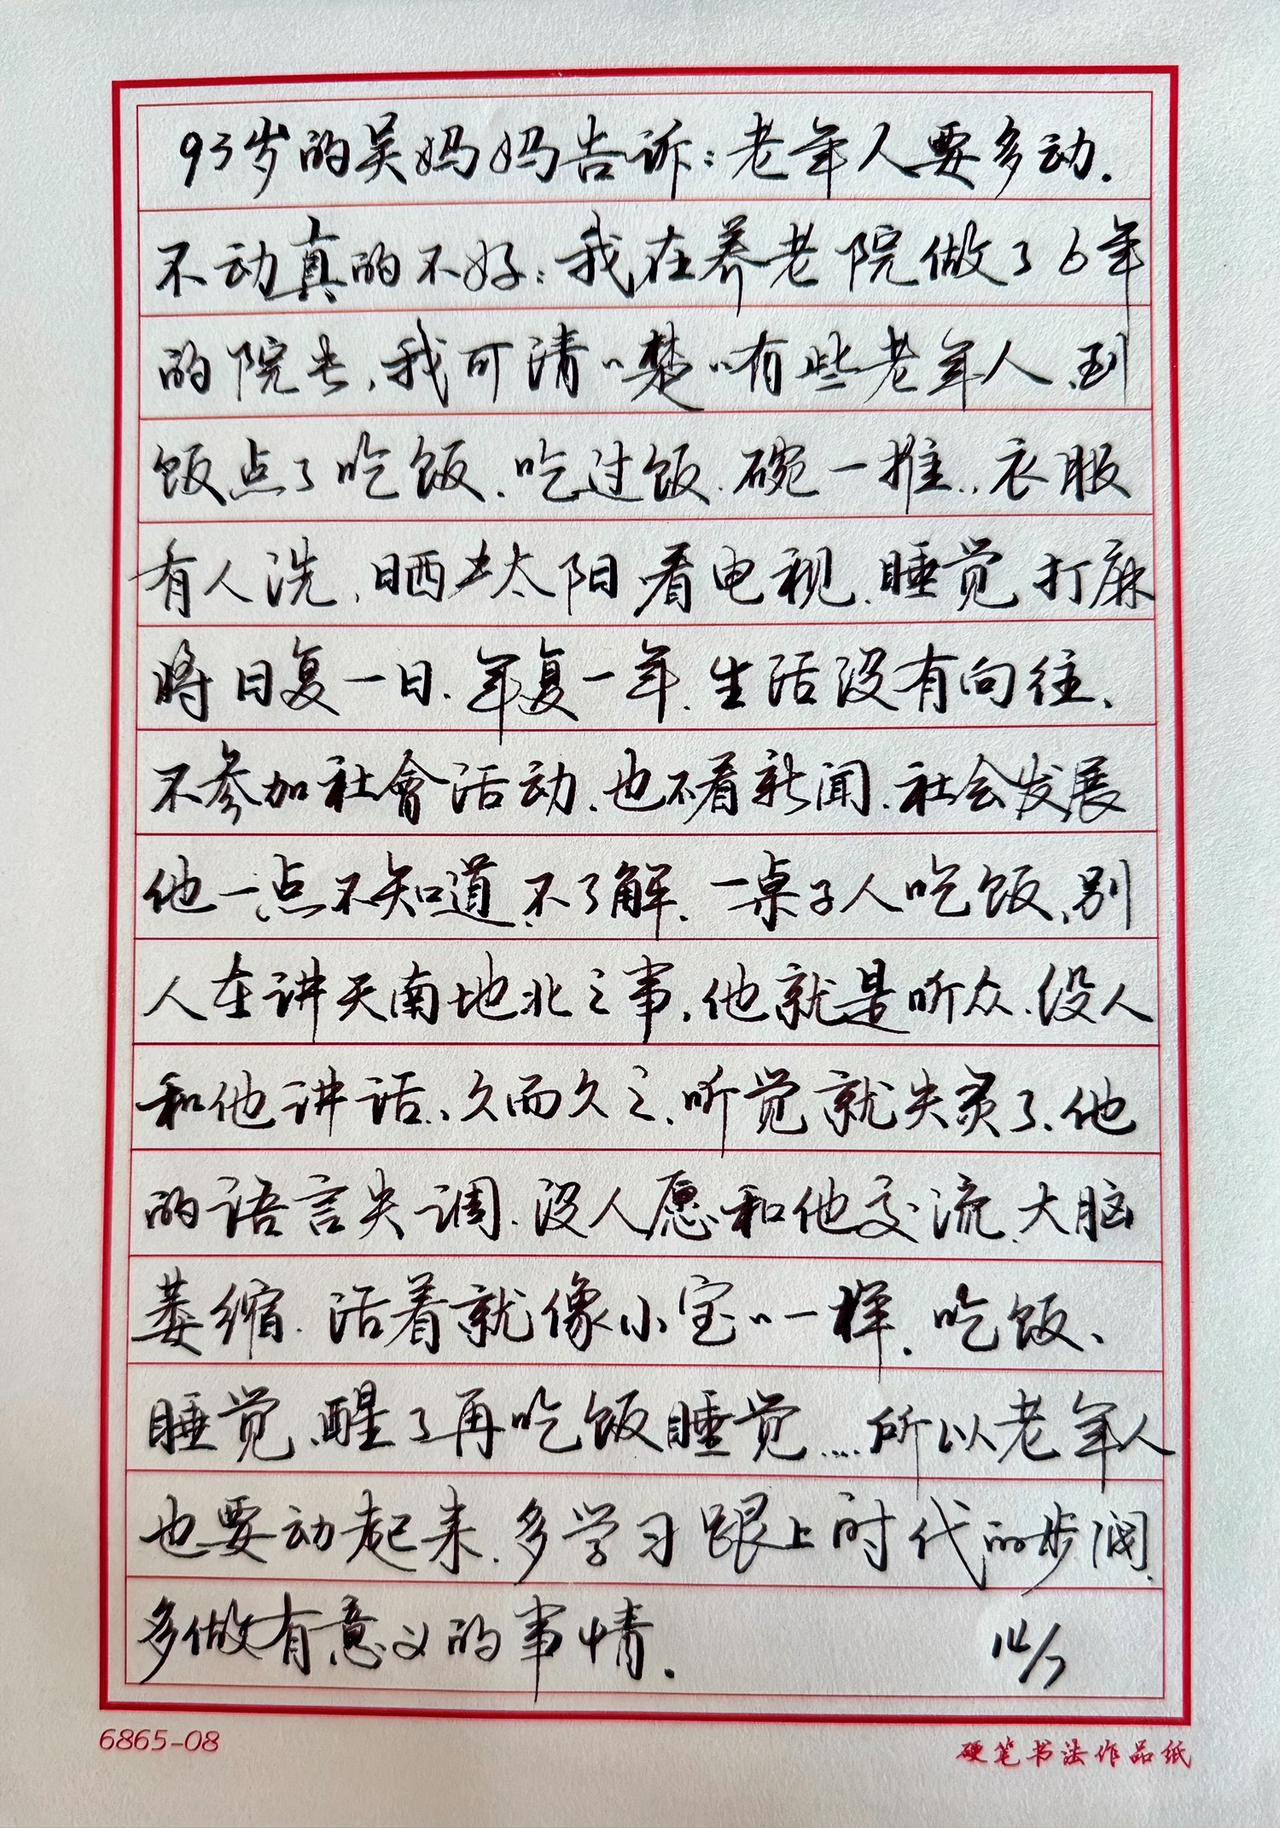 93岁的吴妈妈告诉：老年人要多动.
不动真的不好：我在养老院做了6年
的院长,我可清〃楚〃有些老年人,到
饭点了吃饭、吃过饭、碗一推、,衣服
有人洗、晒晒太阳看电视、睡觉、打麻
将日复一日、年复一年、生活没有向往、
不参加社會活动、也不看新闻、社会发展
他一点不知道、不了解、一桌子人吃饭、别
人在讲天南地北之事、他就是听众、没人
和他讲话、久而久之、听觉就失灵了、他
的语言失调、没人愿和他交流、大脑
萎缩、活着就像小宝〃一样、吃饭、
睡觉、醒了再吃饭睡觉....所以老年人
也要动起来、多学习跟上时代的步阀、
多做有意义的事情.
14/7
6865-08
硬笔书法作品纸